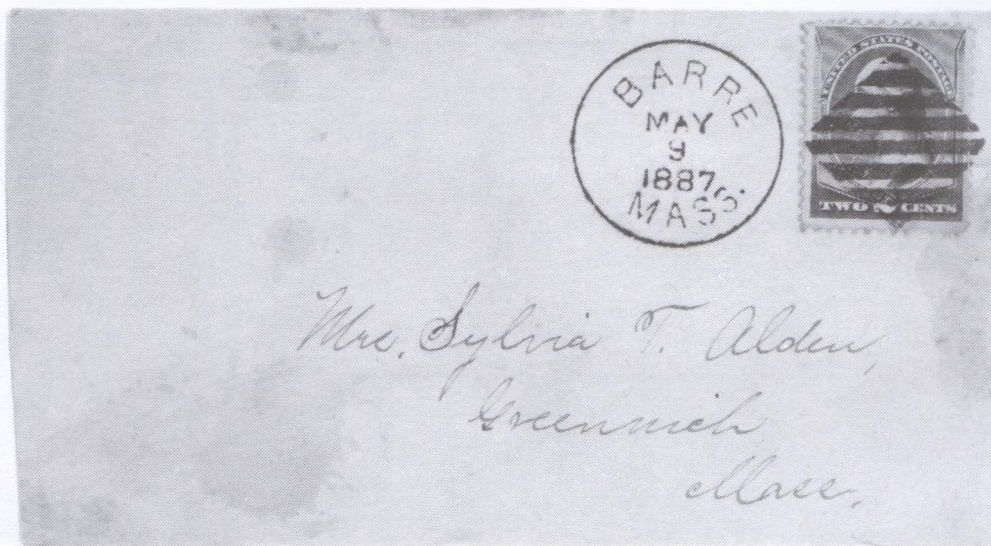 BARRE
MAY
9
1887
MASS.
UNITED STATES POSTAGE
TWO 2 CENTS
Mrs. Sylvia T. Alden,
Greenwich
Mass.